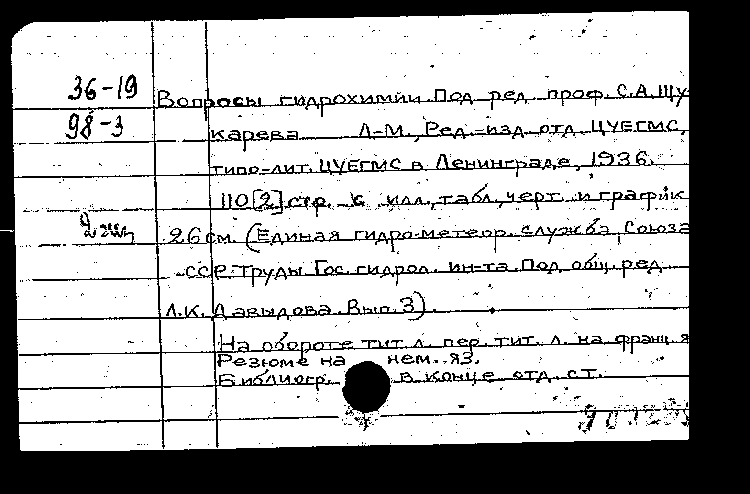 36-19
Вопросы гидрохимии. Под ред. проф. С.А. Щу-
98-3
карева Л-М., Ред.-изд. отд. ЦУЕГМС,
типо-лит. ЦУЕГМС в Ленинграде, 1936.
110 [2] стр. с илл., табл., черт. и график
2 экз
26 см. (Единая гидро-метеор. служба Союза
ССР. Труды Гос. гидрол. ин-та. Под общ. ред.
Л.К. Давыдова. Вып. 3).
На обороте тит. л. пер. тит. л. на франц. я
Резюме на нем. яз.
Библиогр. в конце отд. ст.